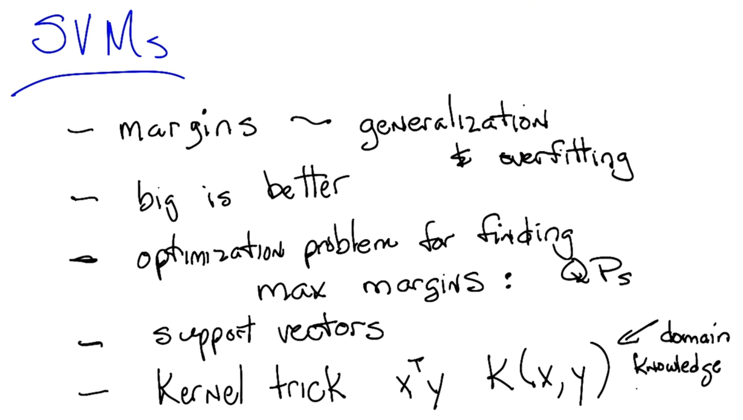 SVMs
- margins ~ generalization
& overfitting
- big is better
- optimization problem for finding
max margins: QPs
- support vectors
- Kernel trick xᵀy K(x,y) ↙ domain
knowledge